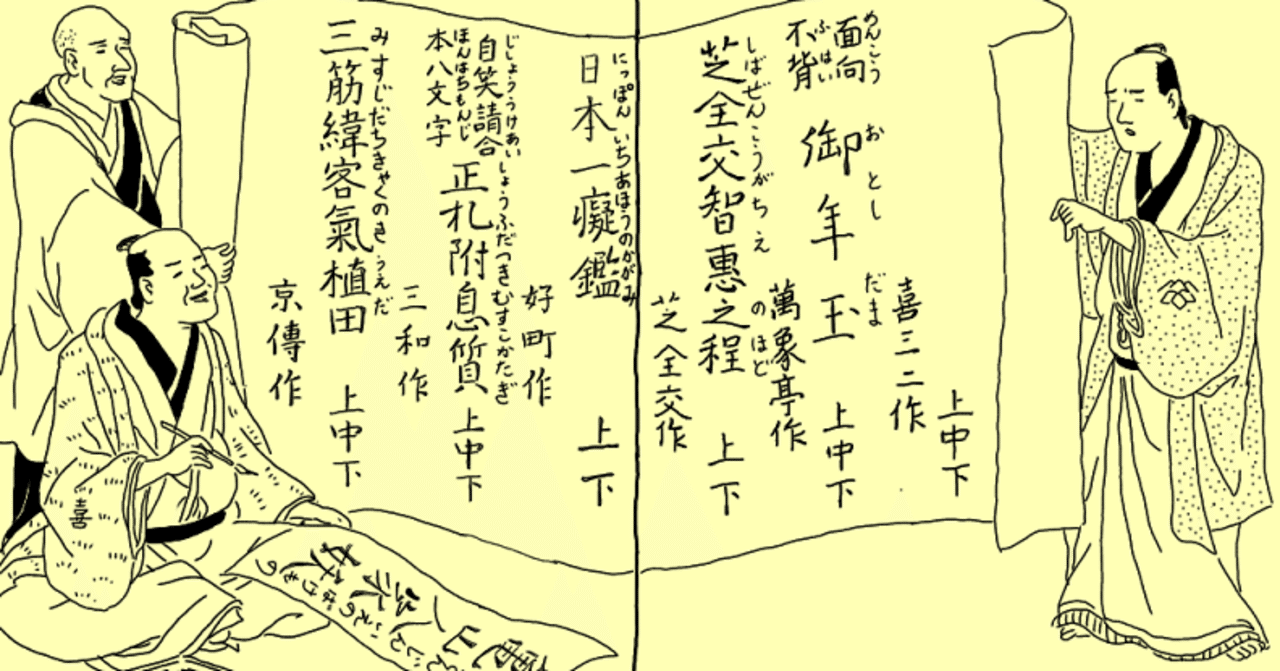 上中下
喜三二作
めんこう
面向
ふはい
不背
おとしだま
御年玉 上中下
萬象亭作
しばぜんこうがちえのほど
芝全交智惠之程 上下
芝全交作
にっぽんいちあほうのかがみ
日本一癡鑑 上下
好町作
じしょううけあい
自笑請合
ほんはちもんじ
本八文字
しょうふだつきむすこかたぎ
正札附息質 上中下
三和作
みすじだちきゃくのきうえだ
三筋緯客氣植田 上中下
京傳作
喜